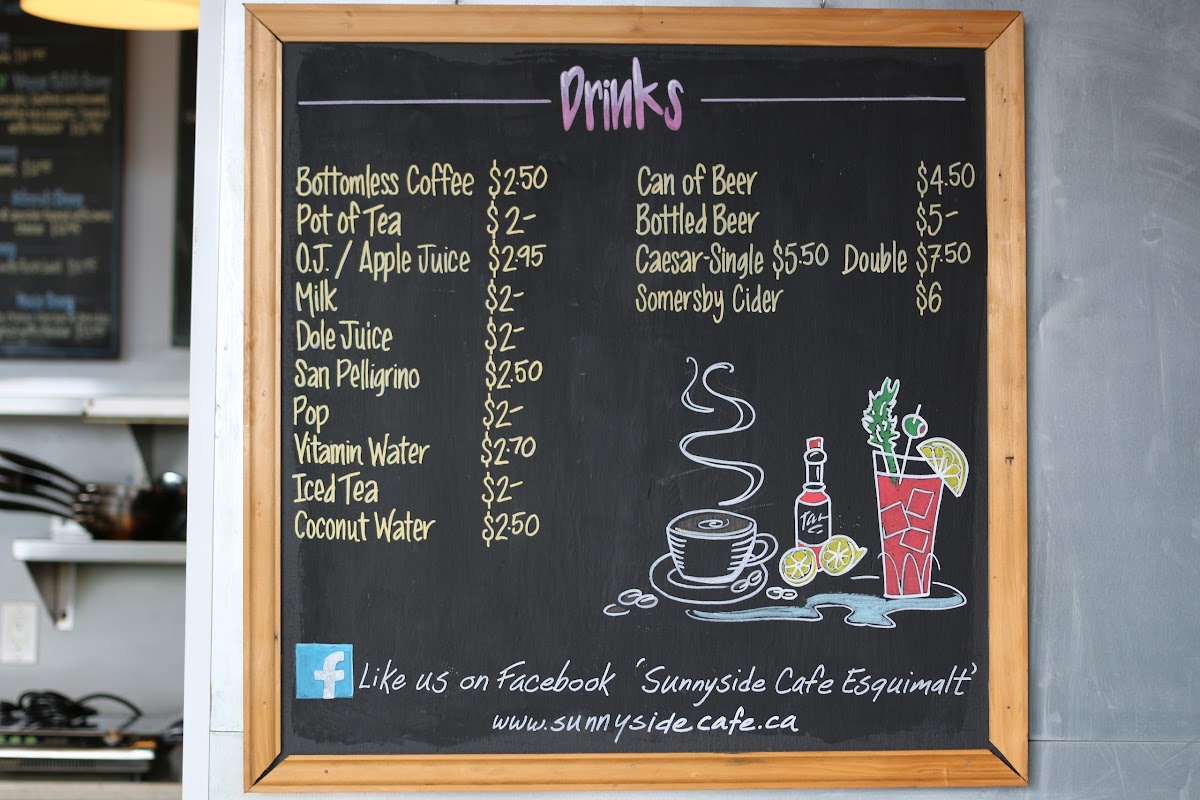 Drinks
Bottomless Coffee $2.50
Pot of Tea $2-
O.J. / Apple Juice $2.95
Milk $2-
Dole Juice $2-
San Pelligrino $2.50
Pop $2-
Vitamin Water $2.70
Iced Tea $2-
Coconut Water $2.50
Can of Beer $4.50
Bottled Beer $5-
Caesar-Single $5.50 Double $7.50
Somersby Cider $6
f Like us on Facebook 'Sunnyside Cafe Esquimalt'
www.sunnysidecafe.ca